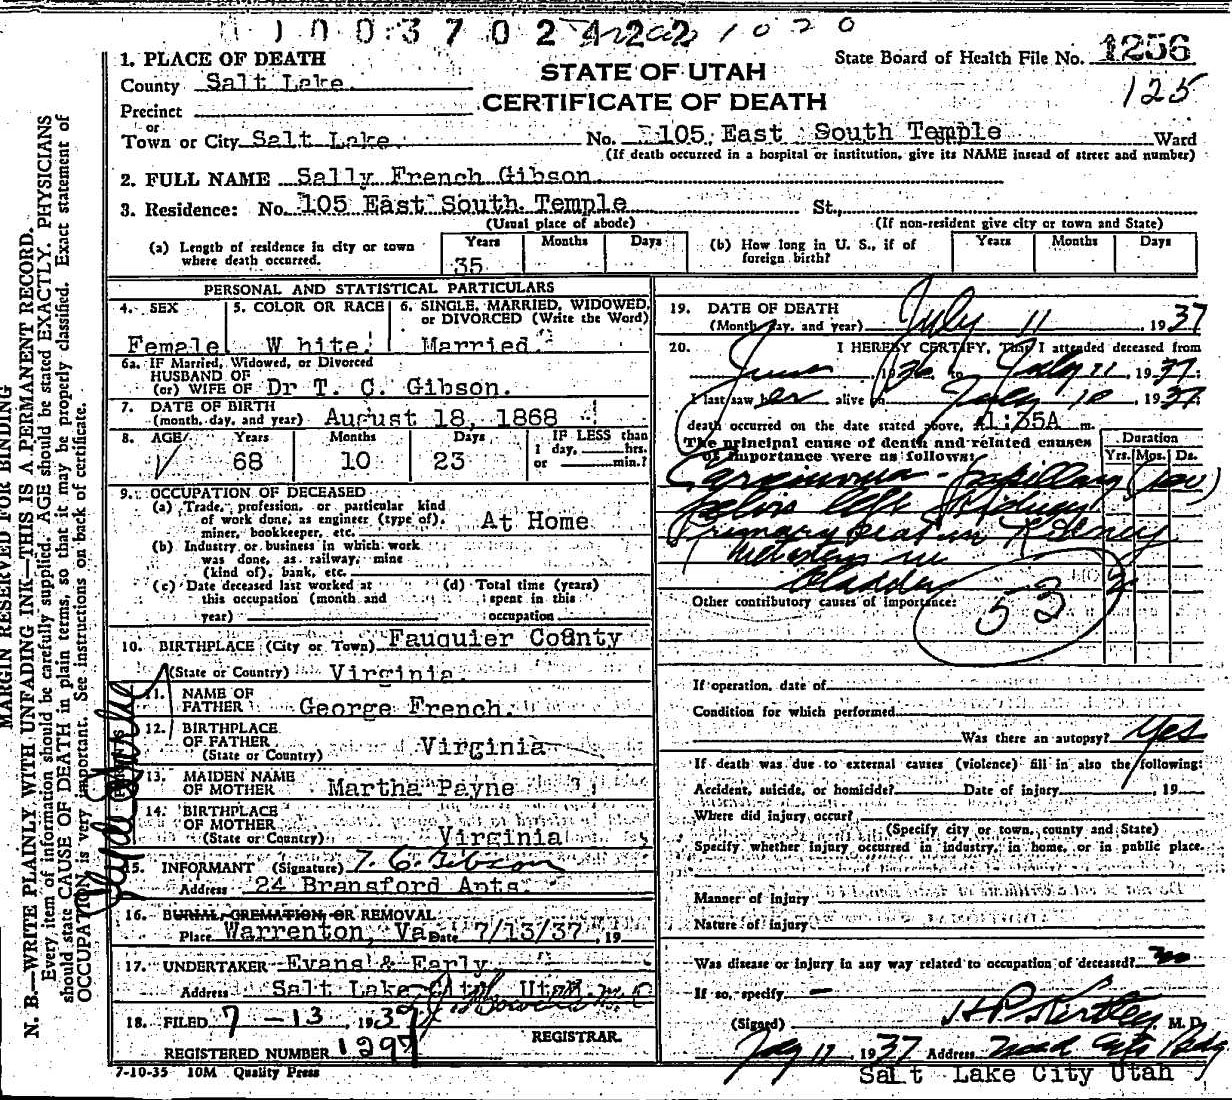 1003702422 1020
1. PLACE OF DEATH
State Board of Health File No. 1256
County Salt Lake.
STATE OF UTAH
125
Precinct
CERTIFICATE OF DEATH
or
Town or City Salt Lake. No. 105, East South Temple Ward
(If death occurred in a hospital or institution, give its NAME insead of street and number)
2. FULL NAME Sally French Gibson.
3. Residence: No. 105 East South Temple St.,
(Usual place of abode) (If non-resident give city or town and State)
(a) Length of residence in city or town where death occurred. Years 35 Months Days
(b) How long in U. S., if of foreign birth? Years Months Days
PERSONAL AND STATISTICAL PARTICULARS
4. SEX 5. COLOR OR RACE 6. SINGLE, MARRIED, WIDOWED,
or DIVORCED (Write the Word)
Female White. Married.
6a. IF Married, Widowed, or Divorced
HUSBAND OF
(or) WIFE OF Dr T. C. Gibson.
7. DATE OF BIRTH
(month, day, and year) August 18, 1868
8. AGE Years Months Days IF LESS than
68 10 23 1 day, hrs.
or min.?
9. OCCUPATION OF DECEASED
(a) Trade, profession, or particular kind
of work done, as engineer (type of),
miner, bookkeeper, etc. At Home
(b) Industry or business in which work
was done, as railway, mine
(kind of), bank, etc.
(c) Date deceased last worked at (d) Total time (years)
this occupation (month and spent in this
year) occupation
10. BIRTHPLACE (City or Town) Fauquier County
(State or Country) Virginia.
11. NAME OF
FATHER George French.
12. BIRTHPLACE
OF FATHER Virginia
(State or Country)
13. MAIDEN NAME
OF MOTHER Martha Payne
14. BIRTHPLACE
OF MOTHER
(State or Country) Virginia
15. INFORMANT (Signature) T. C. Gibson
Address 24 Bransford Apts.
16. BURIAL, CREMATION, OR REMOVAL
Place Warrenton, Va. Date 7/13/37, 19
17. UNDERTAKER Evans & Early
Address Salt Lake City, Utah
18. FILED 7-13, 1937
REGISTRAR.
REGISTERED NUMBER 1297
7-10-35 10M Quality Press
19. DATE OF DEATH
(Month, day, and year) July 11, 1937
20. I HEREBY CERTIFY, That I attended deceased from
June 1936 to July 11, 1937;
I last saw her alive on July 10, 1937
death occurred on the date stated above, at 1:35A m.
The principal cause of death and related causes
of importance were as follows:
Duration
Yrs. Mos. Ds.
Carcinoma - papillary
pelvis left kidney
Primary seat in Kidney
in
bladder
Other contributory causes of importance:
53
If operation, date of
Condition for which performed
Was there an autopsy? Yes
If death was due to external causes (violence) fill in also the following:
Accident, suicide, or homicide? Date of injury, 19
Where did injury occur?
(Specify city or town, county and State)
Specify whether injury occurred in industry, in home, or in public place.
Manner of Injury
Nature of injury
Was disease or injury in any way related to occupation of deceased? no
If so, specify -
(Signed) H P Kirtley, M. D.
July 11, 1937 Address Med Arts Bldg
Salt Lake City Utah
MARGIN RESERVED FOR BINDING
N. B.—WRITE PLAINLY WITH UNFADING INK—THIS IS A PERMANENT RECORD.
Every item of information should be carefully supplied. AGE should be stated EXACTLY. PHYSICIANS
should state CAUSE OF DEATH in plain terms, so that it may be properly classified. Exact statement of
OCCUPATION is very important. See instructions on back of certificate.